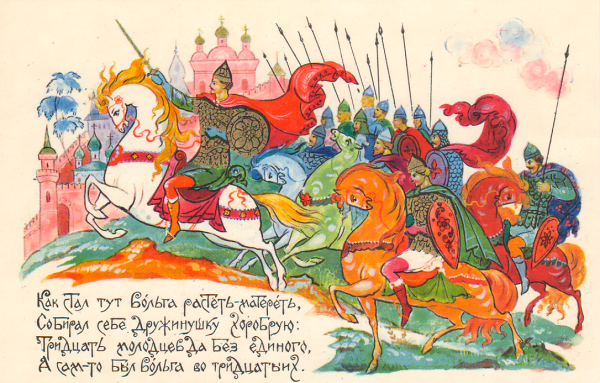 Как стал тут Вольга растеть-матереть,
Собирал себе дружинушку хоробрую:
Тридцать молодцев да без единого,
А сам-то был Вольга во тридцатыих.